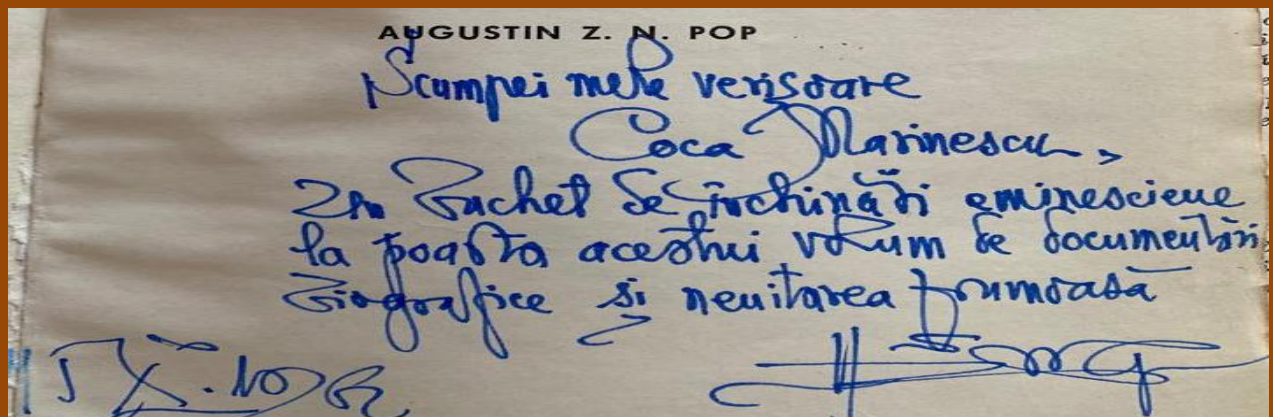 AUGUSTIN Z. N. POP
Scumpei mele verișoare
Coca Marinescu,
Un buchet de închinări eminesciene
la poarta acestui volum de documentări
biografice și neuitarea frumoasă